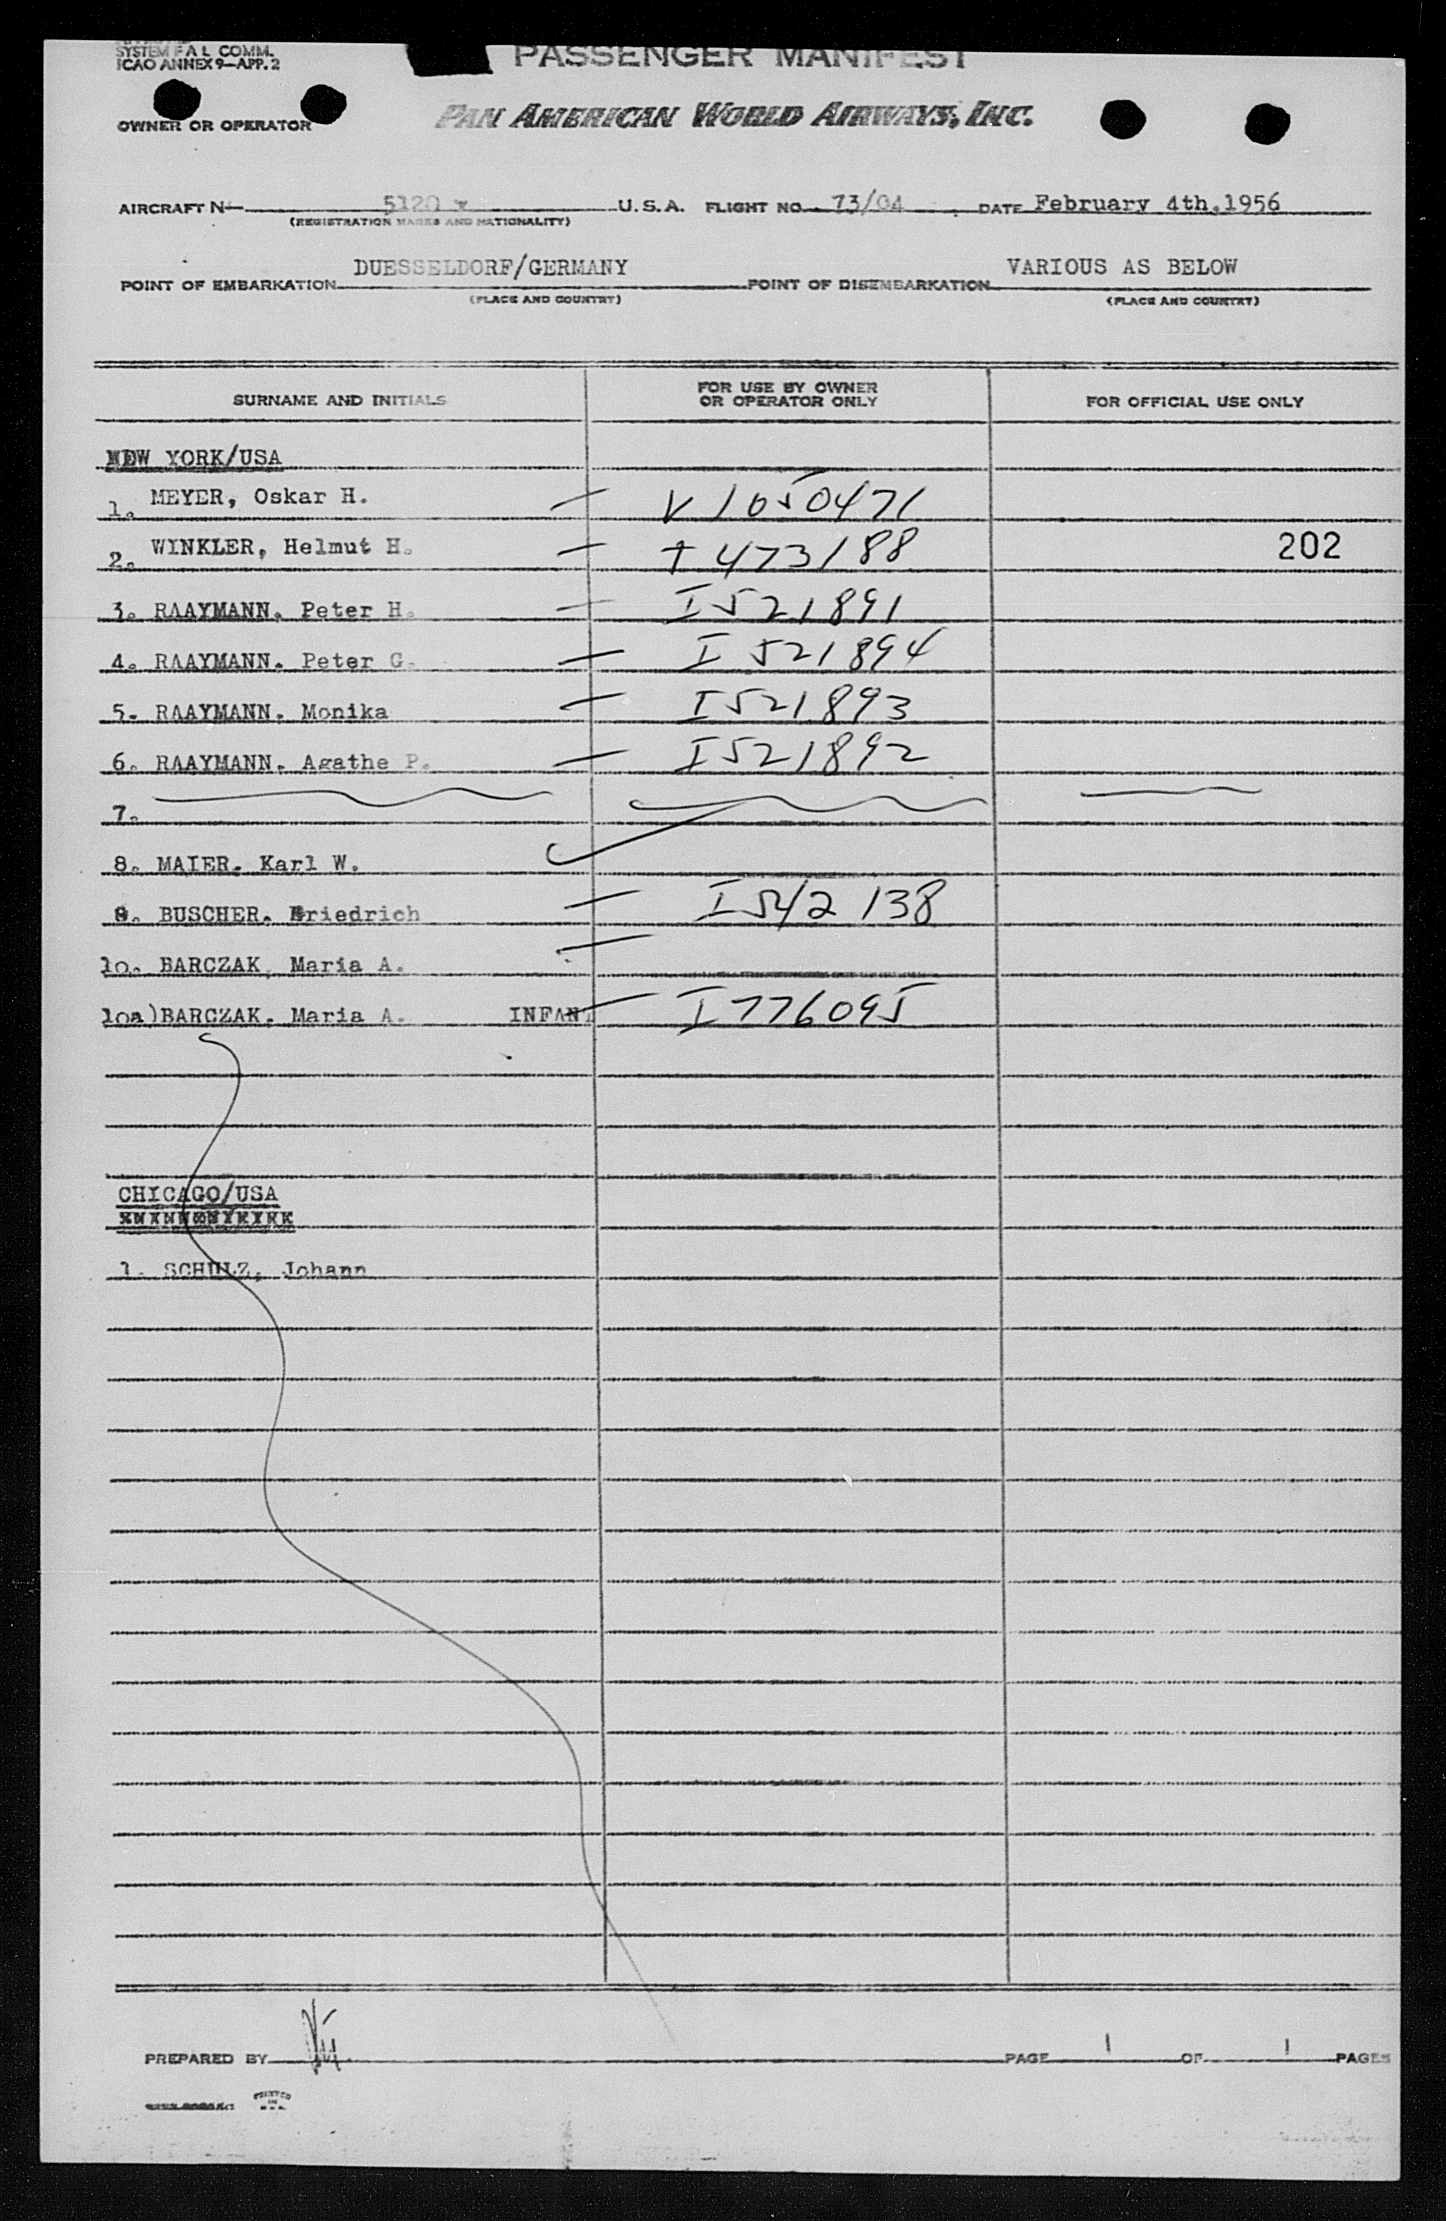 SYSTEM F A L COMM.
ICAO ANNEX 9—APP. 2
PASSENGER MANIFEST
OWNER OR OPERATOR
PAN AMERICAN WORLD AIRWAYS, INC.
AIRCRAFT N— 5120 U. S. A. FLIGHT NO. 73/04 DATE February 4th.1956
(REGISTRATION MARKS AND NATIONALITY)
DUESSELDORF/GERMANY VARIOUS AS BELOW
POINT OF EMBARKATION POINT OF DISEMBARKATION
(PLACE AND COUNTRY) (PLACE AND COUNTRY)
SURNAME AND INITIALS FOR USE BY OWNER OR OPERATOR ONLY FOR OFFICIAL USE ONLY
NEW YORK/USA
1. MEYER, Oskar H. V 1050471
2. WINKLER, Helmut H. T 473188 202
3. RAAYMANN. Peter H. I 521891
4. RAAYMANN. Peter G. I 521894
5. RAAYMANN. Monika I 521893
6. RAAYMANN. Agathe P. I 521892
7.
8. MAIER. Karl W.
9. BUSCHER. Friedrich I 542 138
lo. BARCZAK, Maria A.
loa)BARCZAK. Maria A. INFANT I 776095
CHICAGO/USA
1. SCHULZ, Johann
PREPARED BY PAGE 1 OF 1 PAGES
PRINTED
IN
U.S.A.